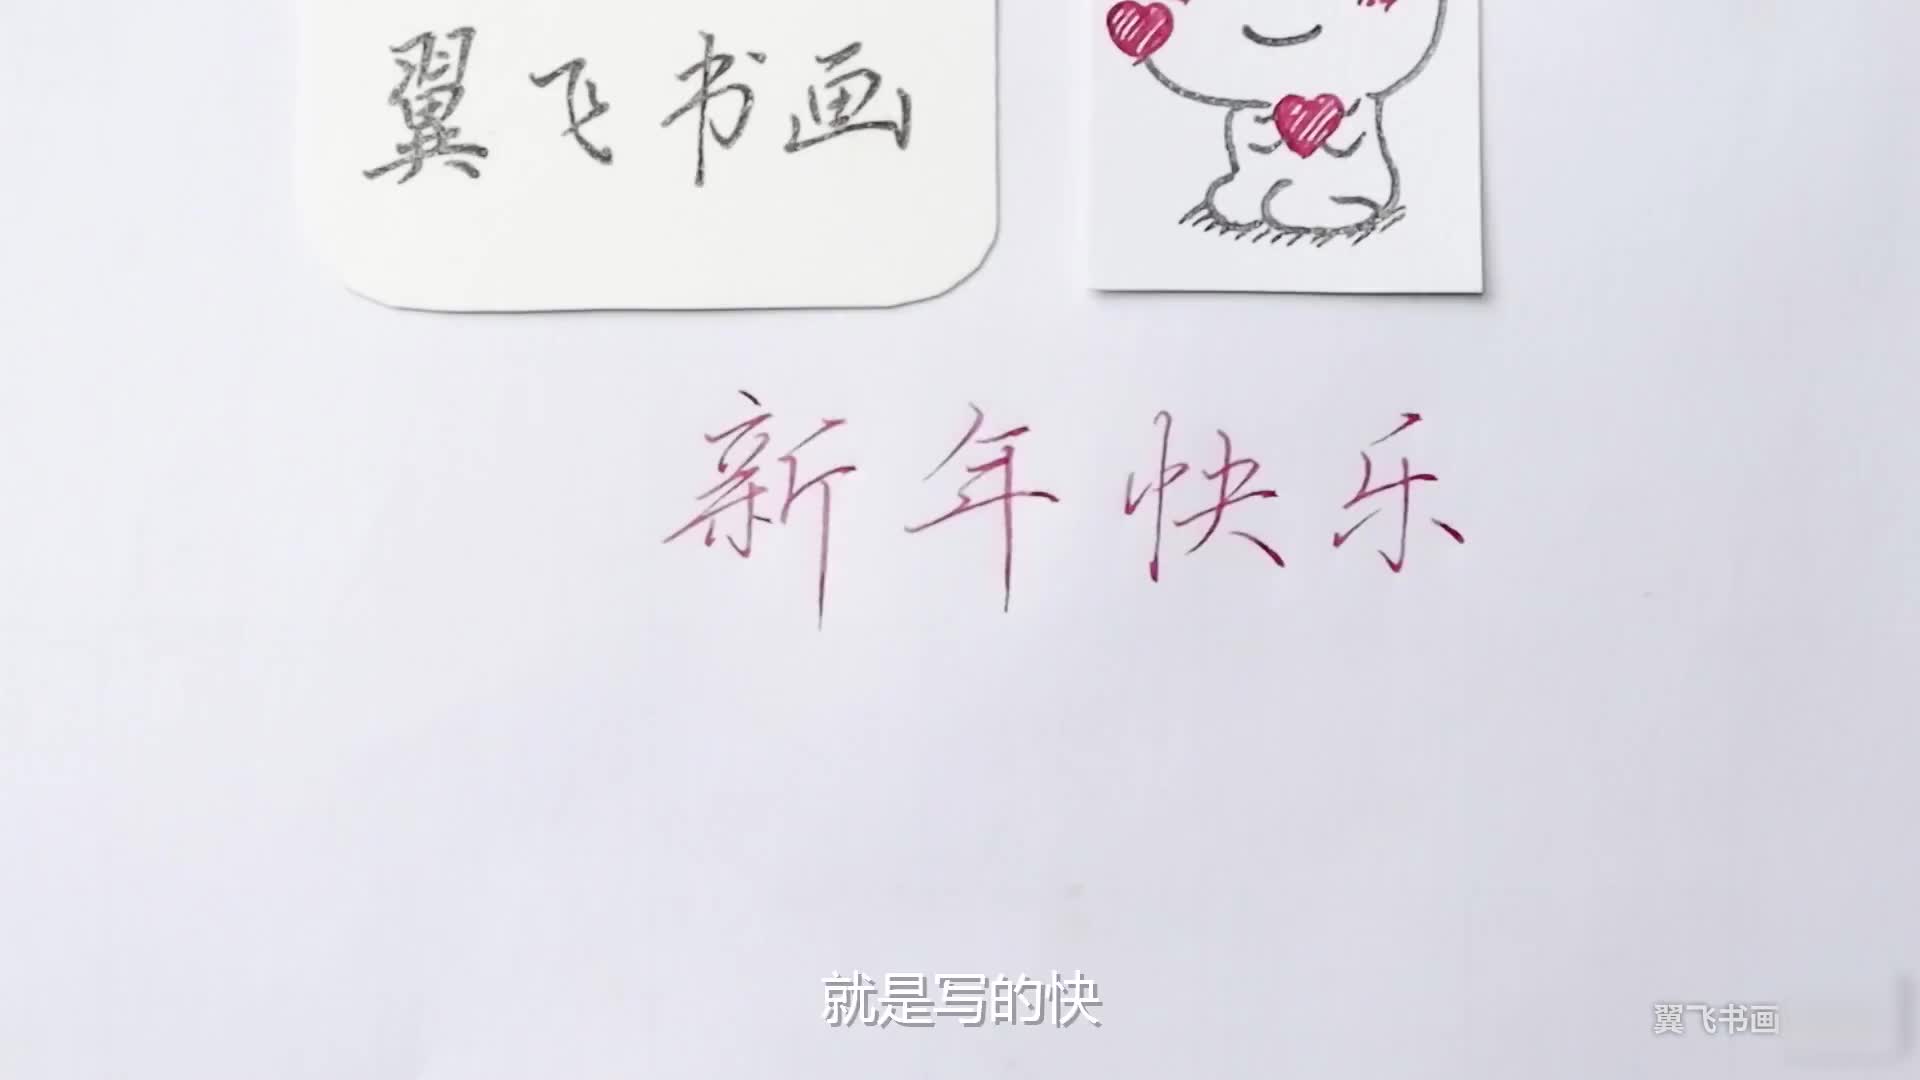 翼飞书画
新年快乐
就是写的快
翼飞书画